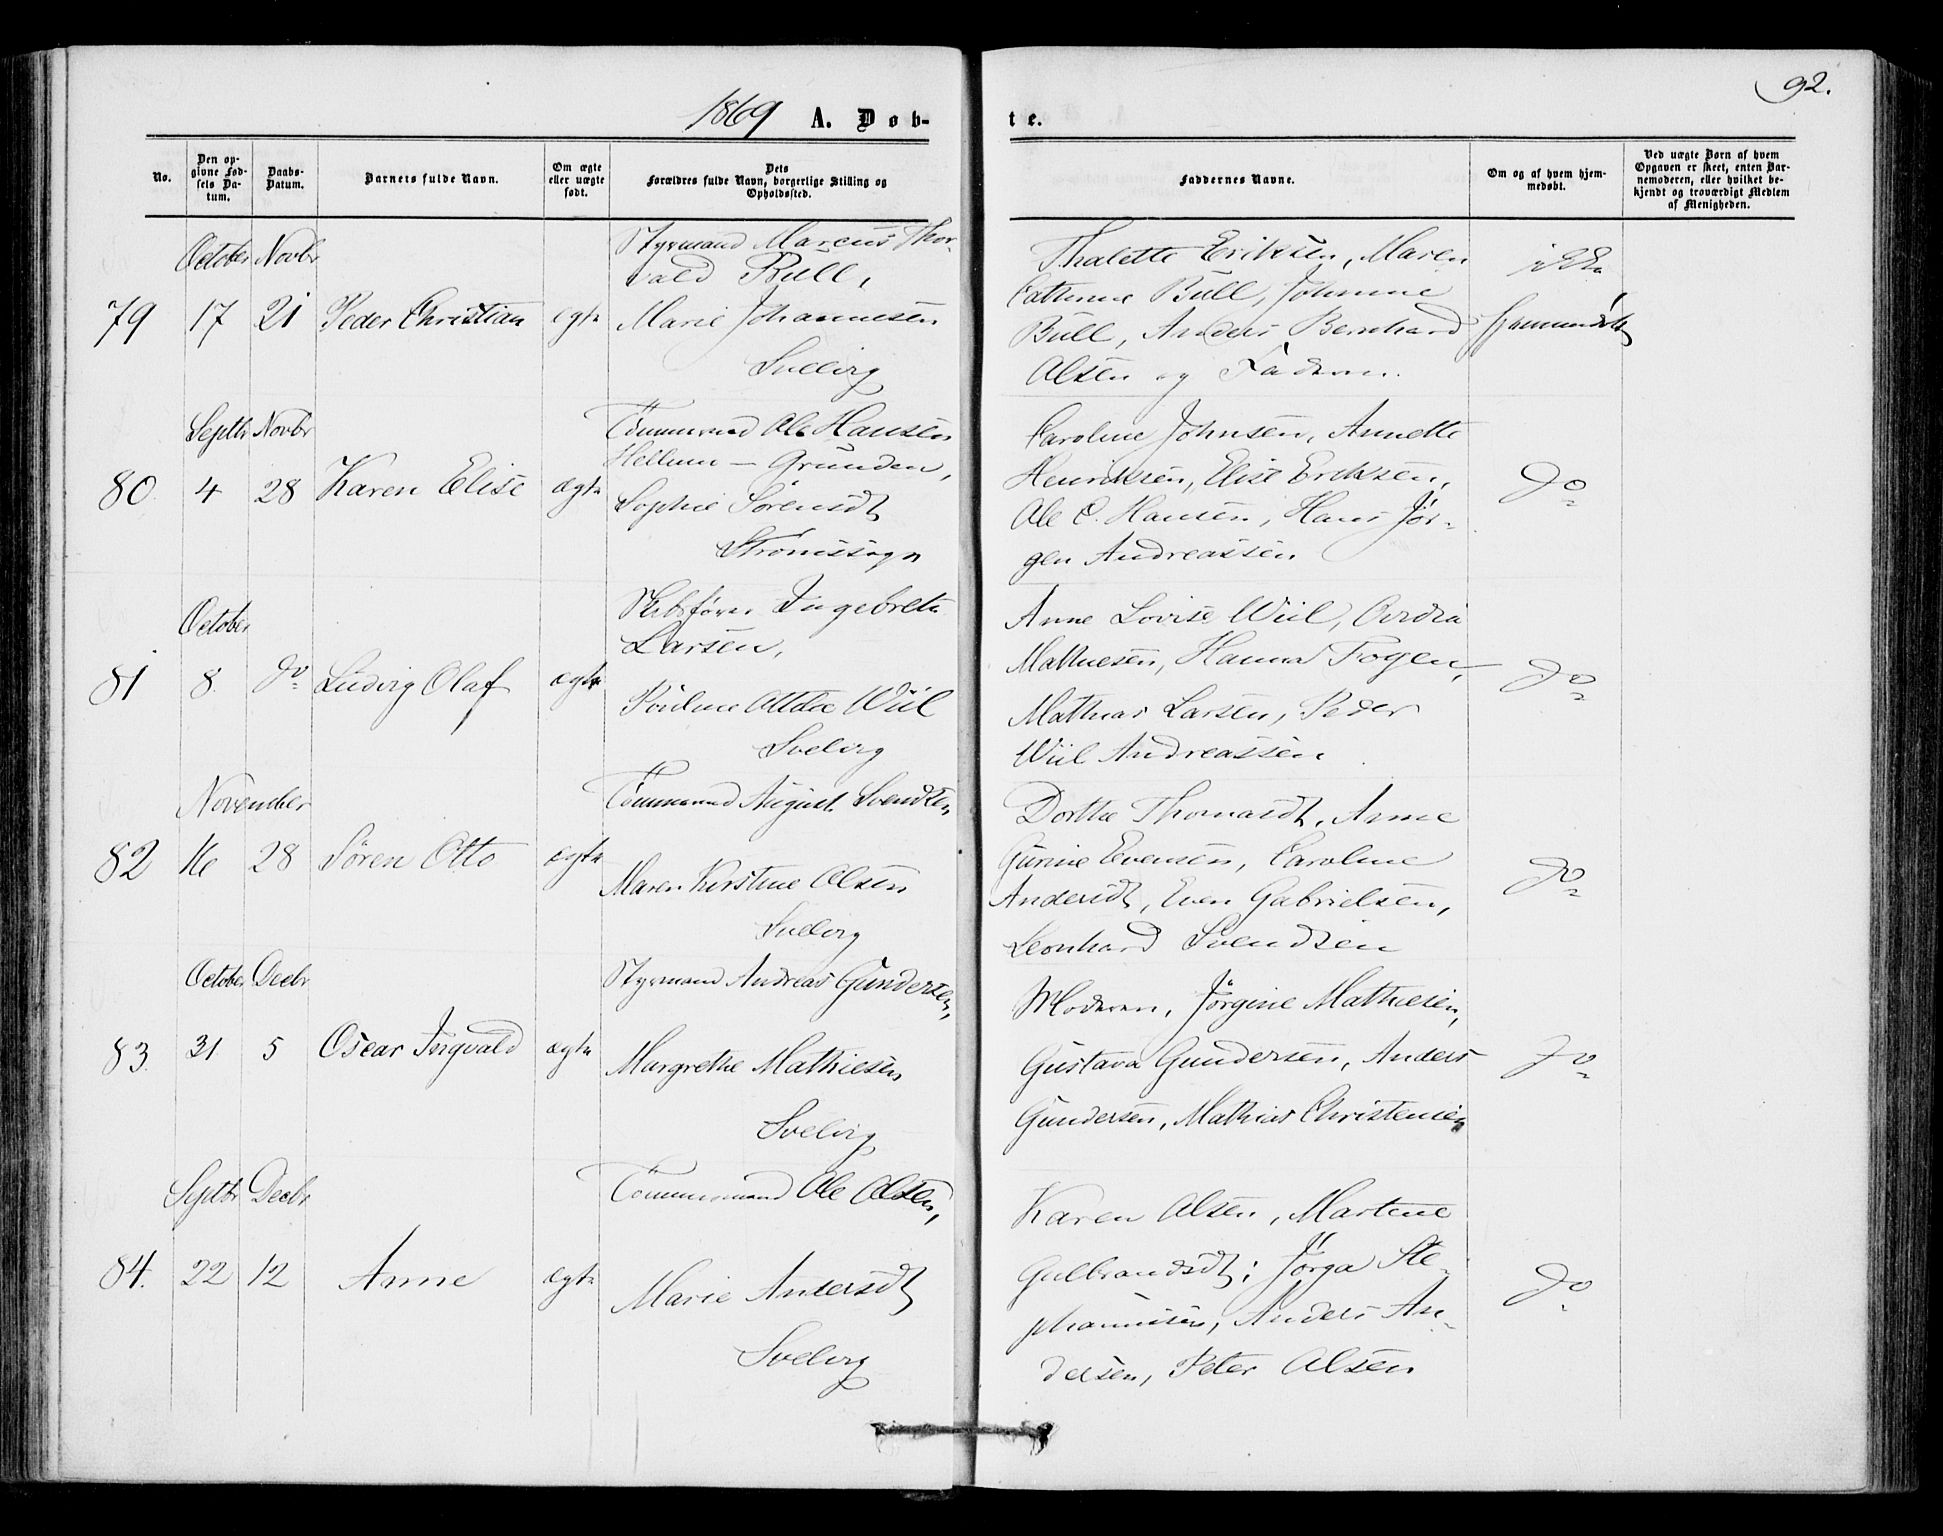 1869 A. Døb-
te.
92.
No.
Den op-
givne Fød-
sels Da-
tum.
Daabs-
Datum.
Barnets fulde Navn.
Om ægte
eller uægte
født.
Dets
Forældres fulde Navn, borgerlige Stilling og
Opholdssted.
Faddernes Navne.
Om og af hvem hjem-
medøbt.
Ved uægte Børn af hvem
Opgaven er skeet, enten Bar-
nemoderen, eller hvilket be-
kjendt og troværdigt Medlem
af Menigheden.
October Novbr
79 17 21 Peder Christian ægte
Styrmand Marcus Thor-
vald Bull,
Marie Johannesen
Svelvig
Thalette Eriksen, Maren
Cathrine Bull, Johanne
Bull, Anders Bernhard
Olsen og Faderen.
ikke
hjemmedøbt
Septbr Novbr
80. 4 28 Karen Elise ægte
Tømmermd Ole Hansen
Hellum - Grunden,
Sophie Sørensdt
Strømssogn
Caroline Johnsen, Annette
Henriksen, Elise Eriksen,
Ole C. Hansen, Hans Jør-
gen Andreassen
do
October
81 8. do Ludvig Olaf ægte
Skibsfører Ingebret
Larsen,
Pouline Attdia Wiil
Svelvig
Anne Lovise Wiil,
Mathiesen, Hanna Fogen,
Mathias Larsen, Peder
Wiil Andreassen
do
November
82 16 28 Søren Otto ægte
Tømmermd August Svendsen,
Maren Kirstine Olsen
Svelvig
Dorthe Thomasdt, Anne
Gurine Evensen, Caroline
Andersdt, Even Gabrielsen,
Leonhard Svendsen
do
October Decbr
83. 31 5 Oscar Ingvald ægte
Styrmand Andreas Gundersen,
Margrethe Mathiesen
Svelvig
Moderen, Jørgine Mathiesen,
Gustava Gundersen, Anders
Gundersen, Mathias Christensen
do
Septbr Decbr
84. 22 12 Anne ægte
Tømmermand Ole Olsen,
Marie Andersdt
Svelvig
Karen Olsen, Martine
Gulbrandsdt; Jørga Ste-
phansen, Anders An-
dersen, Peter Olsen
do